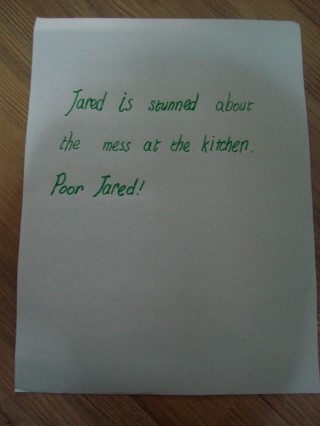 Jared is stunned about
the mess at the kitchen.
Poor Jared!